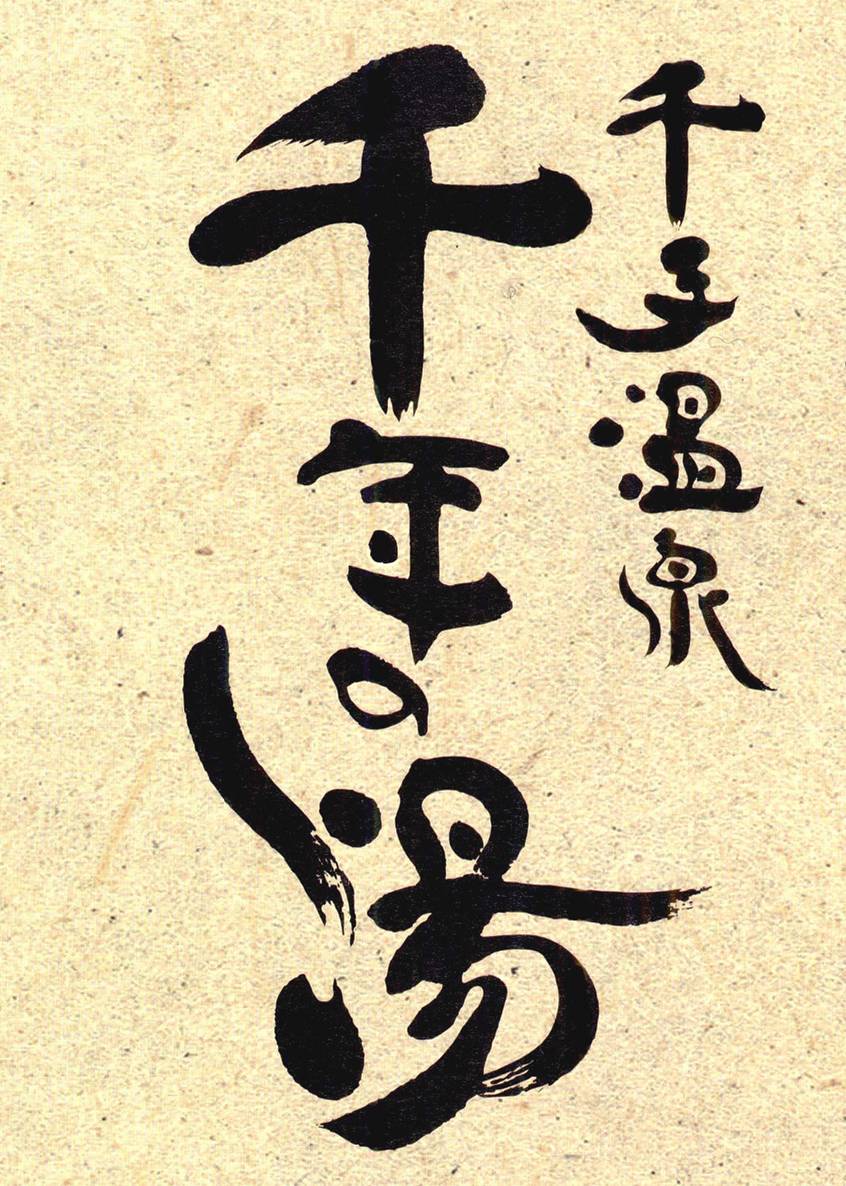 千子温泉
千年の湯